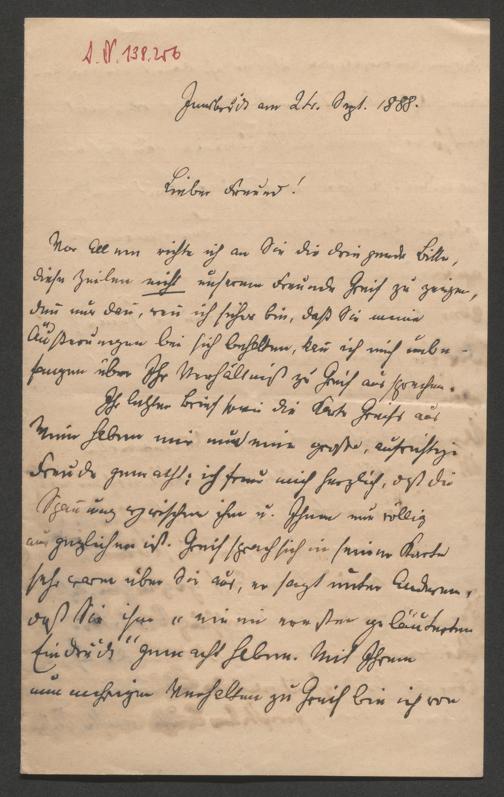 I. N. 138.256
Innsbruck am 24. Sept. 1888.
Lieber Freund!
Vor Allem richte ich an Sie die dringende Bitte,
diese Zeilen nicht unserem Freunde Greif zu zeigen,
denn nur dann, wenn ich sicher bin, daß Sie meine
Äußerungen bei sich behalten, kann ich mich unbe-
fangen über Ihr Verhältniß zu Greif aussprechen.
Ihr letzter Brief sowie die Karte Greifs aus
Wien haben mir eine große, aufrichtige
Freude gemacht; ich freue mich herzlich, daß die
Spannung zwischen ihm u. Ihnen nun völlig
ausgeglichen ist. Greif sprach sich in seiner Karte
sehr warm über Sie aus, er sagt unter Anderem,
daß Sie ihm "einen ernsten geläuterten
Eindruck" gemacht haben. Mit Ihrem
nunmehrigen Verhalten zu Greif bin ich von